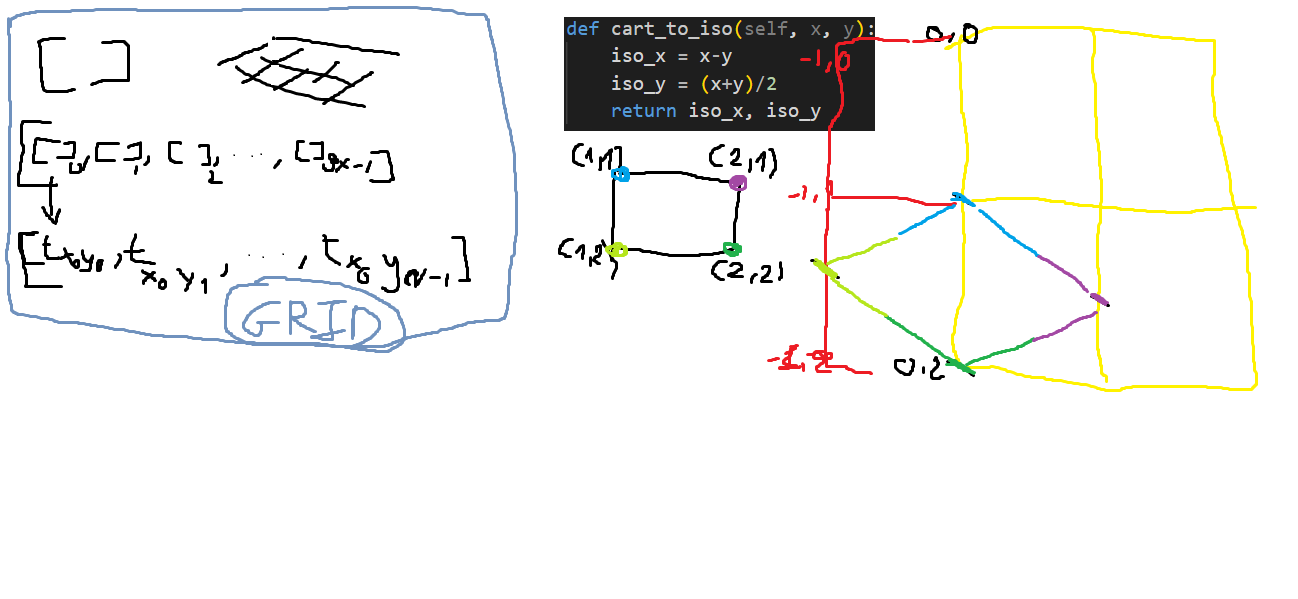 [ ]
[[ ]0, [ ]1, [ ]2, ....., [ ]gx-1]
[tx0y0, tx0y1, ....., tx0yN-1]
GRID
def cart_to_iso(self, x, y):
iso_x = x-y
iso_y = (x+y)/2
return iso_x, iso_y
(1,1)
(2,1)
(1,2)
(2,2)
0,0
-1,0
0,2